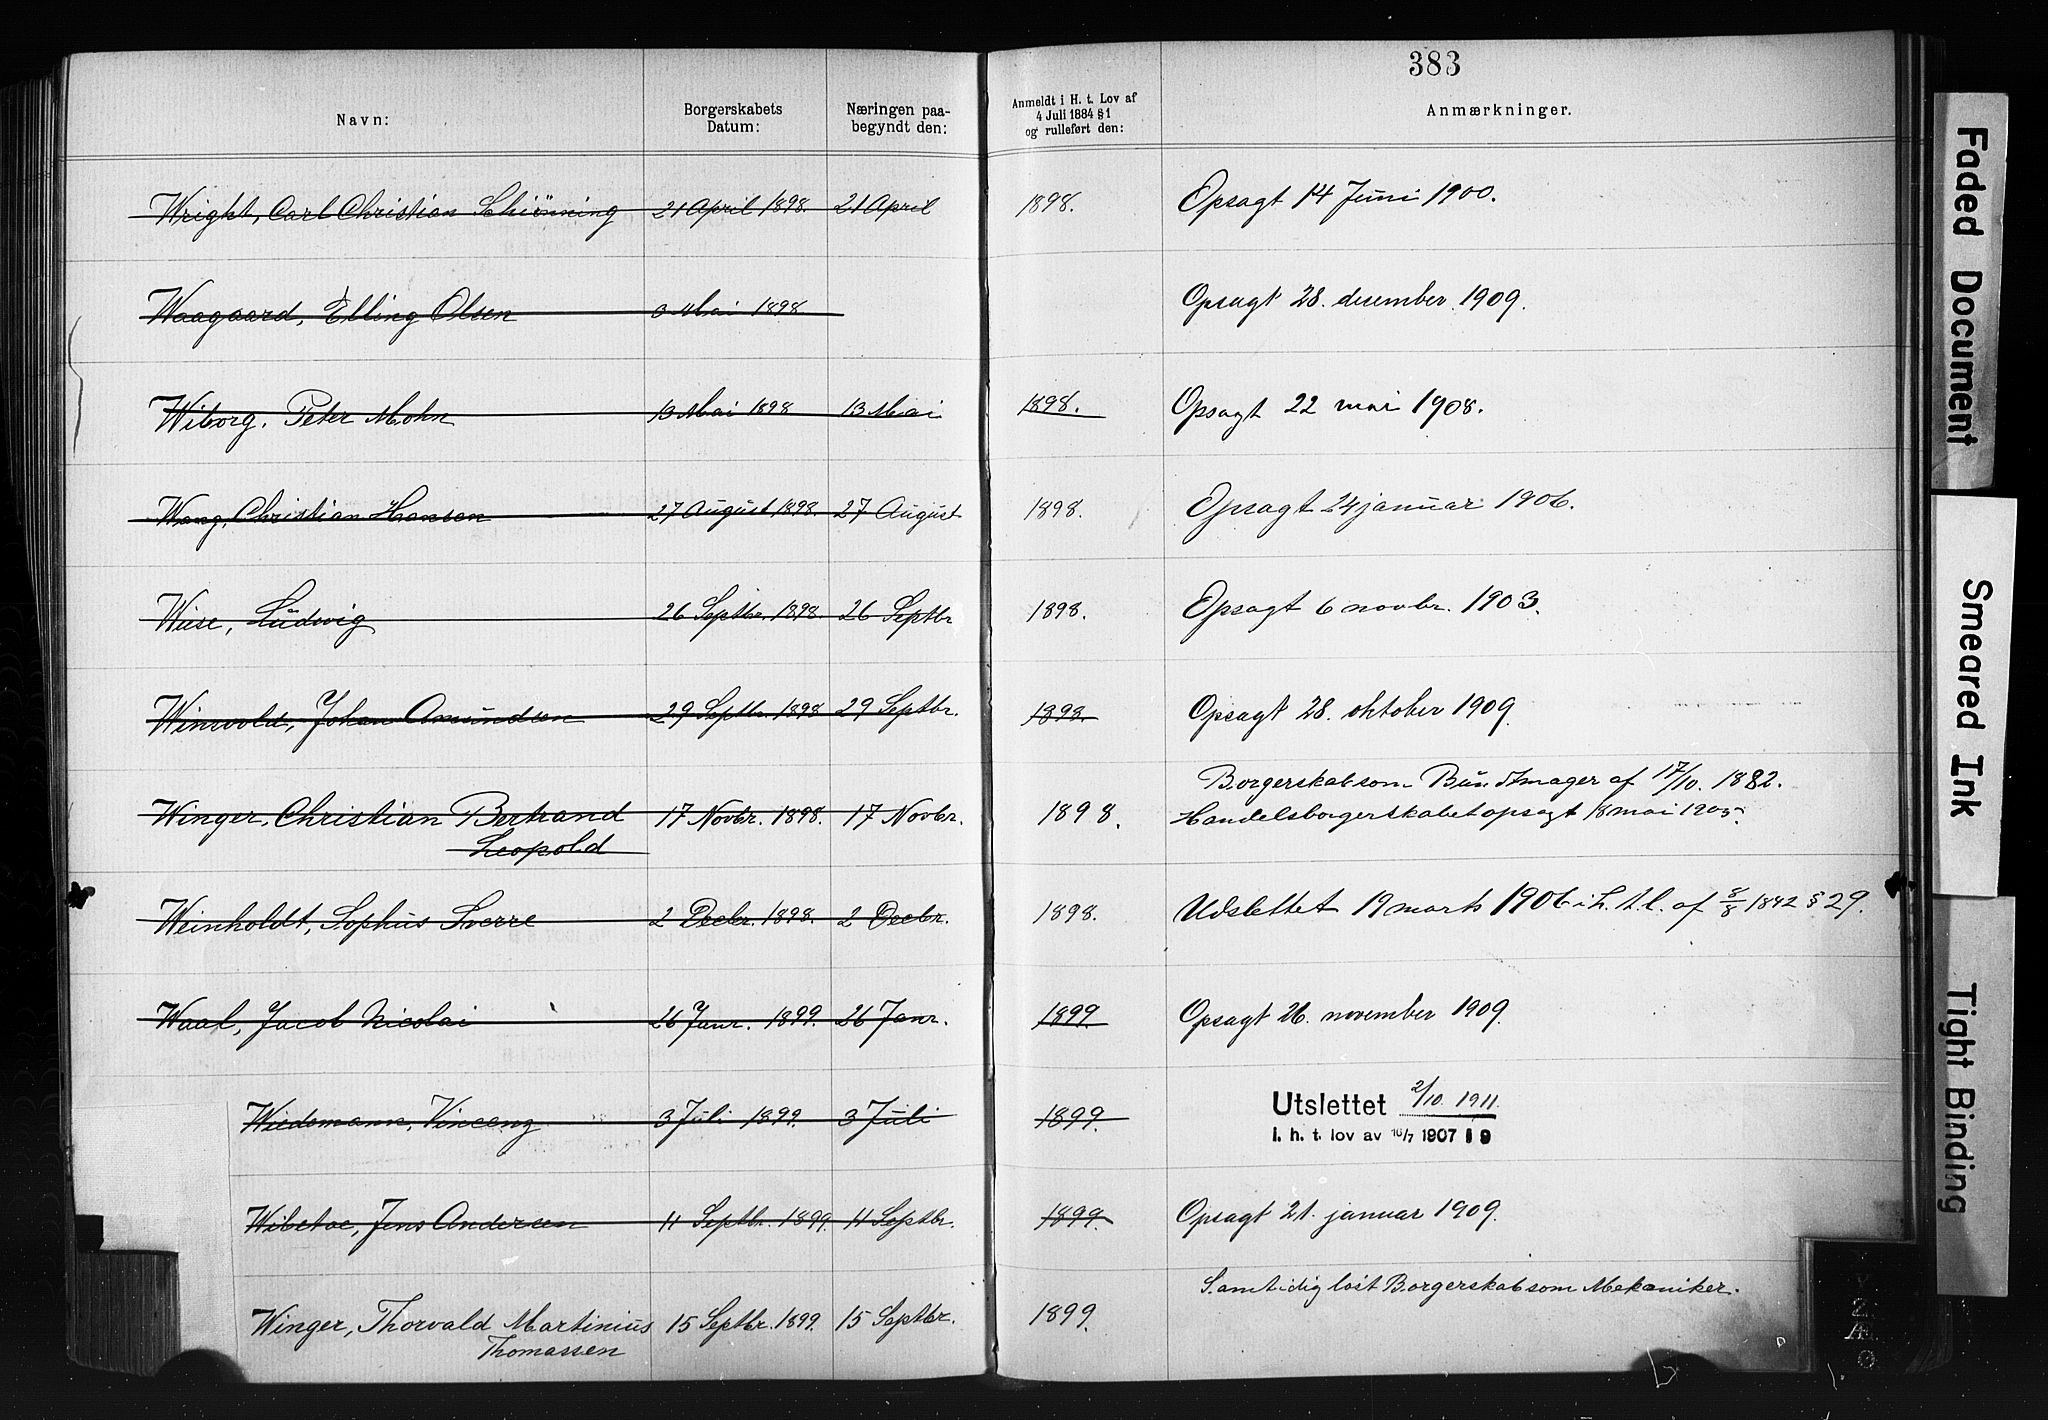 383
Navn: Borgerskabets Datum: Næringen paa- begyndt den: Anmeldt i H. t. Lov af 4 Juli 1884 § 1 og rulleført den: Anmærkninger.
Wright, Carl Christian Schiønning 21 April 1898. 21 April 1898. Opsagt 14 Juni 1900.
Waagaard, Elling Olsen Mai 1898 Opsagt 28. desember 1909.
Wiborg, Peter Mohn 13 Mai 1898 13 Mai 1898. Opsagt 22 mai 1908.
Wang, Christian Hansen 27 August 1898. 27 August 1898. Opsagt 24 januar 1906.
Wiise, Ludvig 26 Septbr. 1898. 26 Septbr 1898. Opsagt 6 novbr. 1903.
Winsvold, Johan Amundsen 29 Septbr. 1898 29 Septbr. 1898. Opsagt 28. oktober 1909.
Borgerskab som Buntmager af 17/10. 1882.
Winger, Christian Bertrand 17 Novbr. 1898. 17 Novbr. 1898. Handelsborgerskabet opsagt 18 mai 1905.
Leopold
Weinholdt, Sophus Sverre 2 Decbr. 1898. 2 Decbr. 1898. Udslettet 19 marts 1906 i h. t. l. af 8/8 1842 § 29.
Waal, Jacob Nicolai 26 Janr. 1899. 26 Janr. 1899 Opsagt 26. november 1909.
Wiedemann, Vincenz 3 Juli 1899. 3 Juli 1899. Utslettet 2/10. 1911.
i. h. t. lov av 16/7 1907 § 9
Wibetoe, Jens Andersen 11 Septbr. 1899. 11 Septbr. 1899. Opsagt 21. januar 1909.
Samtidig løst Borgerskab som Mekaniker.
Winger, Thorvald Martinius 15 Septbr. 1899. 15 Septbr. 1899.
Thomassen
Faded Document
Smeared Ink
Tight Binding